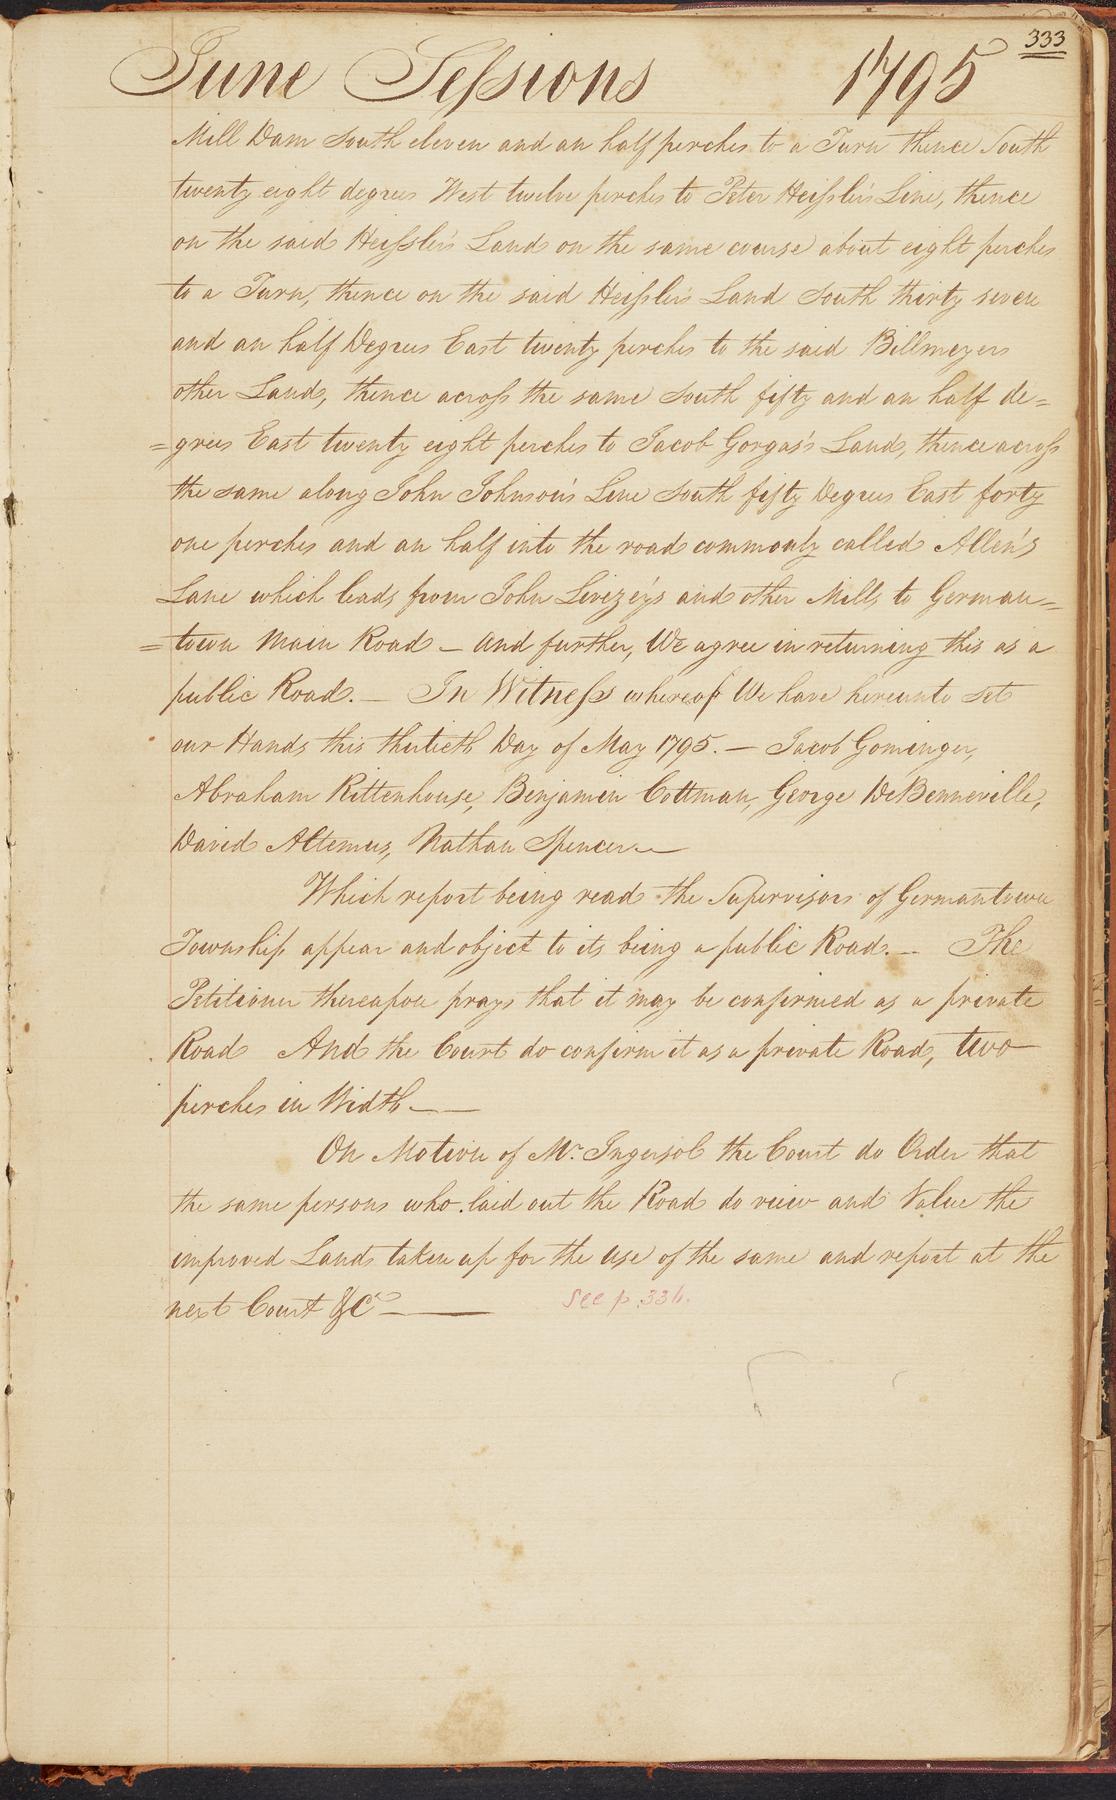 333
June Sessions 1795
Mill Dam South eleven and an half perches to a Turn thence South
twenty eight degrees West twelve perches to Peter Heissler's Line, thence
on the said Heissler's Land on the same course about eight perches
to a Turn, thence on the said Heissler's Land South thirty seven
and an half Degrees East twenty perches to the said Billmeyers
other Land, thence across the same South fifty and an half de=
=grees East twenty eight perches to Jacob Gorgas's Land, thence across
the same along John Johnson's Line South fifty Degrees East forty
one perches and an half into the road commonly called Allen's
Lane which leads from John Livezey's and other Mills to German=
=town Main Road — And further, We agree in returning this as a
public Road. — In Witness whereof We have hereunto set
our Hands this thirtieth Day of May 1795. — Jacob Gominger,
Abraham Rittenhouse, Benjamin Cottman, George DeBenneville,
David Altemus, Nathan Spencer. —
Which report being read the Supervisors of Germantown
Township appear and object to its being a public Road. — The
Petitioner thereupon prays that it may be confirmed as a private
Road And the Court do confirm it as a private Road, two
perches in Width. —
On Motion of Mr. Ingersol the Court do Order that
the same persons who laid out the Road do view and Value the
improved Lands taken up for the use of the same and report at the
next Court &c —
See p. 336.